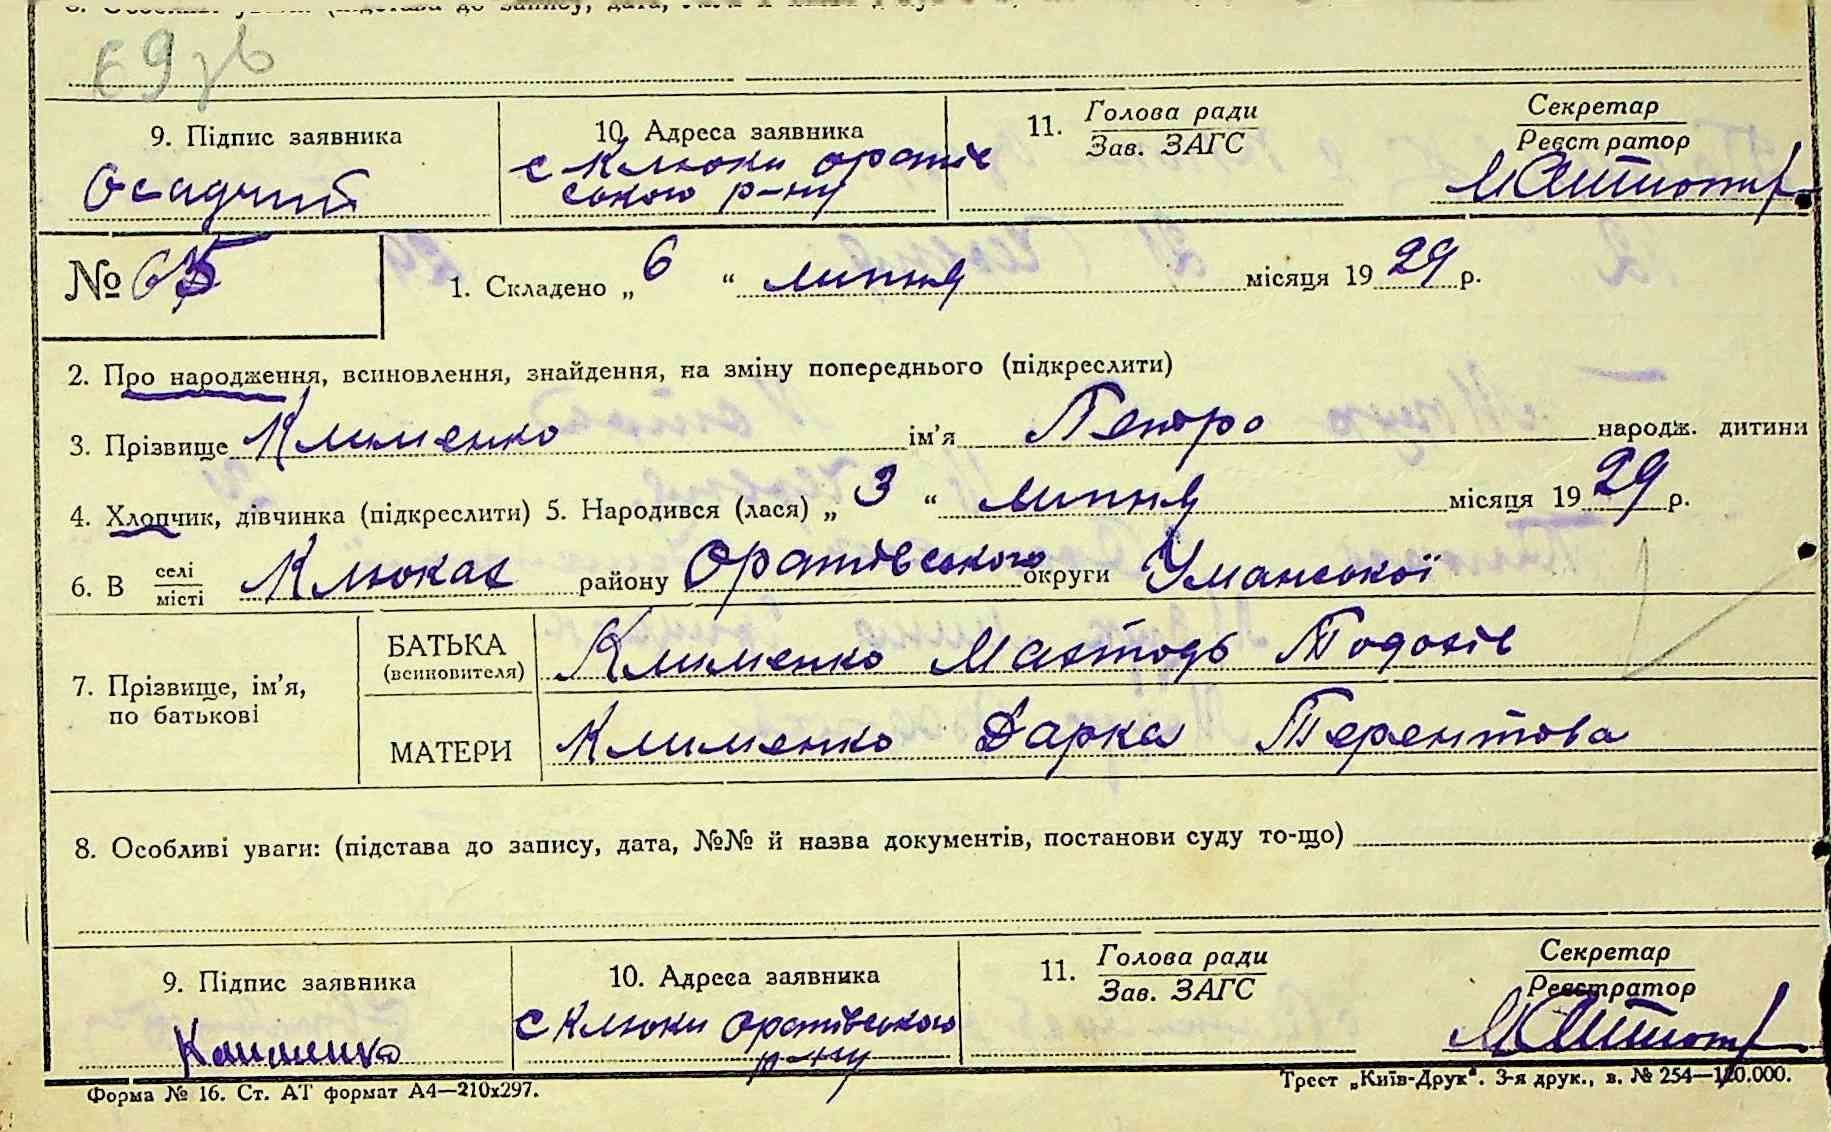 9. Підпис заявника
10. Адреса заявника
11. Голова ради
Зав. ЗАГС
Секретар
Реєстратор
Осадчий
с Клюки оратів
ського р-ну
№ 65
1. Складено „ 6 “ липня місяця 1929 р.
2. Про народження, всиновлення, знайдення, на зміну попереднього (підкреслити)
3. Прізвище Клименко ім’я Петро народж. дитини
4. Хлопчик, дівчинка (підкреслити) 5. Народився (лася) „ 3 “ липня місяця 1929 р.
6. В селі
місті
Клюках району Оратівського округи Уманської
7. Прізвище, ім’я,
по батькові
БАТЬКА
(всиновителя)
Клименко Тодосів
МАТЕРИ
Клименко Дарка Терентова
8. Особливі уваги: (підстава до запису, дата, №№ й назва документів, постанови суду то-що)
9. Підпис заявника
10. Адреса заявника
11. Голова ради
Зав. ЗАГС
Секретар
Реєстратор
с Клюки оратівського
р-ну
Форма № 16. Ст. АТ формат А4—210х297.
Трест „Київ-Друк“. 3-я друк., в. № 254—120.000.